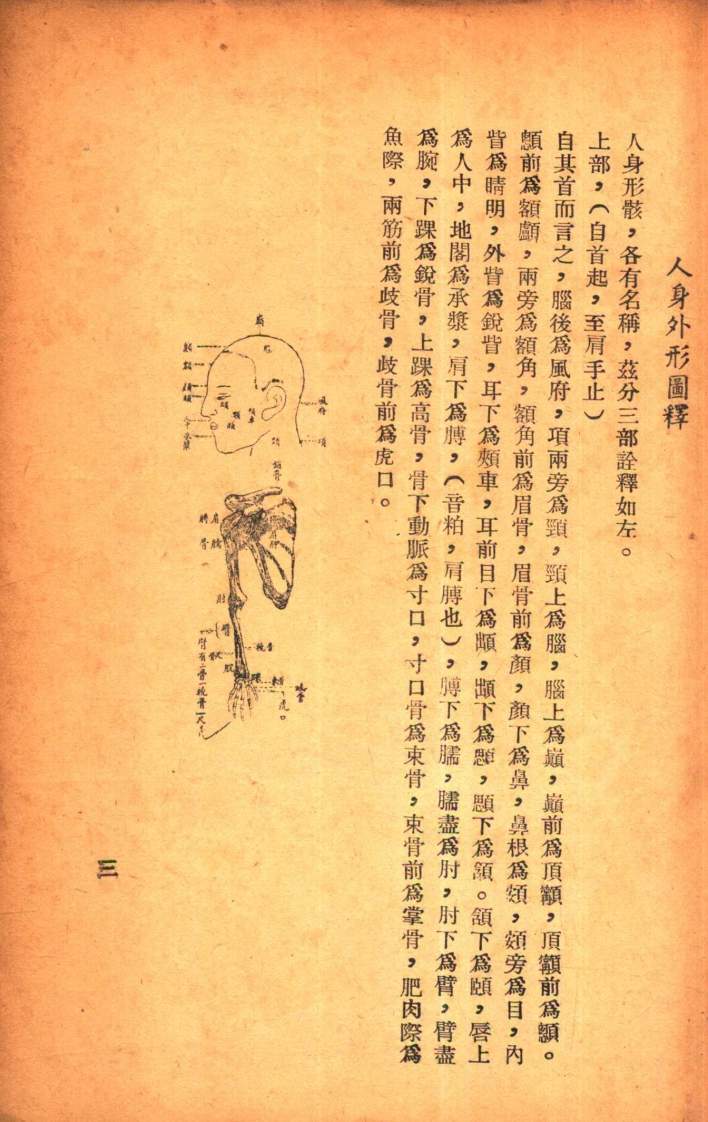 人身外形圖釋
人身形骸，各有名稱，茲分三部詮釋如左。
上部，（自首起，至肩手止）
自其首而言之，腦後爲風府，項兩旁爲頸，頸上爲腦，腦上爲巔，巔前爲頂顖，頂顖前爲顖。
顖前爲額顱，兩旁爲額角，額角前爲眉骨，眉骨前爲顏，顏下爲鼻，鼻根爲頞，頞旁爲目，內
眥爲睛明，外眥爲銳眥，耳下爲頰車，耳前目下爲䪼，䪼下爲顴，顴下爲頷。頷下爲頤，唇上
爲人中，地閣爲承漿，肩下爲膊，（音粕，肩膊也），膊下爲臑，臑盡爲肘，肘下爲臂，臂盡
爲腕，下踝爲銳骨，上踝爲高骨，骨下動脈爲寸口，寸口骨爲束骨，束骨前爲掌骨，肥肉際爲
魚際，兩筋前爲歧骨，歧骨前爲虎口。
風府
項
頸
肩
肘
臂
臂有二骨一
虎口
三